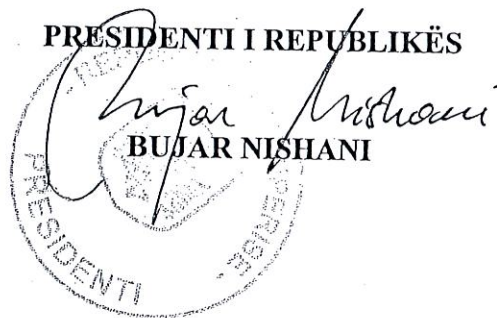 PRESIDENTI I REPUBLIKËS
Bujar Nishani
BUJAR NISHANI
PRESIDENTI